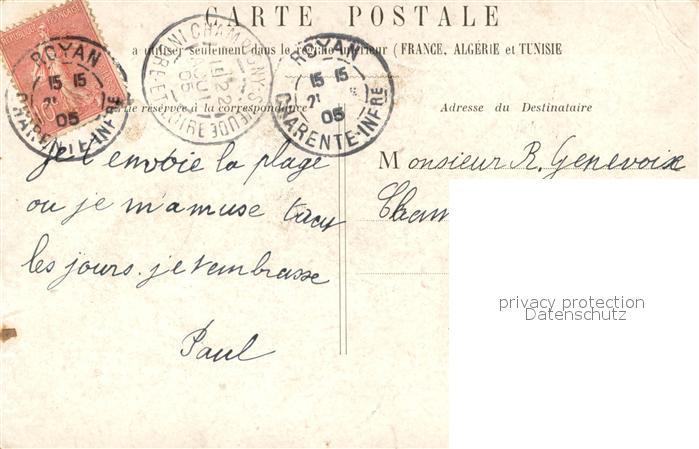 CARTE POSTALE
a utiliser seulement dans le régime intérieur (FRANCE, ALGÉRIE et TUNISIE
ROYAN
15 15
05
CHARENTE-INFRE
ROYAN
15 15
05
CHARENTE-INFRE
réservée à la correspondance
Adresse du Destinataire
je t'envoie la plage
ou je m'amuse tous
les jours. je t'embrasse
Paul
Monsieur R. Genevoix
Cham
privacy protection
Datenschutz